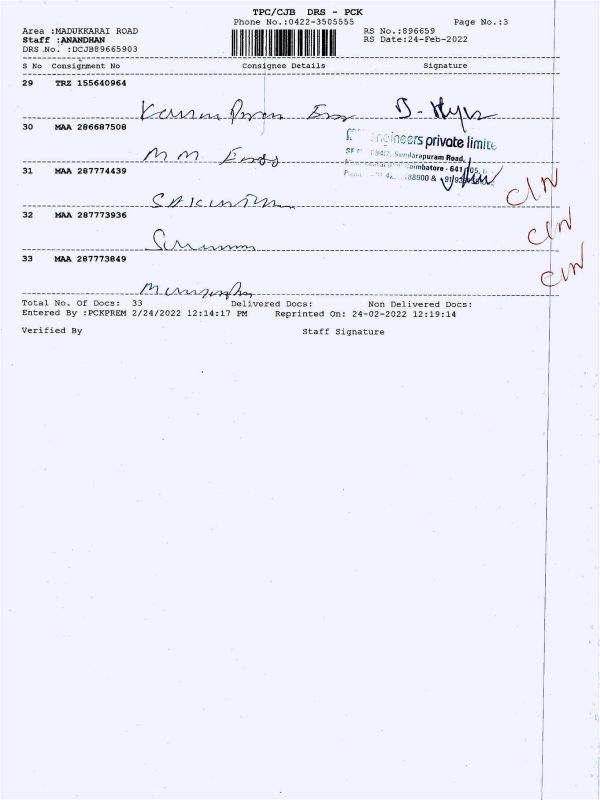 TPC/CJB DRS - PCK
Phone No.:0422-3505555 Page No.:3
Area :MADUKKARAI ROAD RS No.:896659
Staff :ANANDHAN RS Date:24-Feb-2022
DRS No. :DCJB89665903
S No Consignment No Consignee Details Signature
29 TRZ 155640964
30 MAA 286687508
engineers private limite
MM
Sundarapuram Road,
31 MAA 287774439
Coimbatore - 641
CIN
32 MAA 287773936
CIN
33 MAA 287773849
CIN
Total No. Of Docs: 33 Delivered Docs: Non Delivered Docs:
Entered By :PCKPREM 2/24/2022 12:14:17 PM Reprinted On: 24-02-2022 12:19:14
Verified By Staff Signature